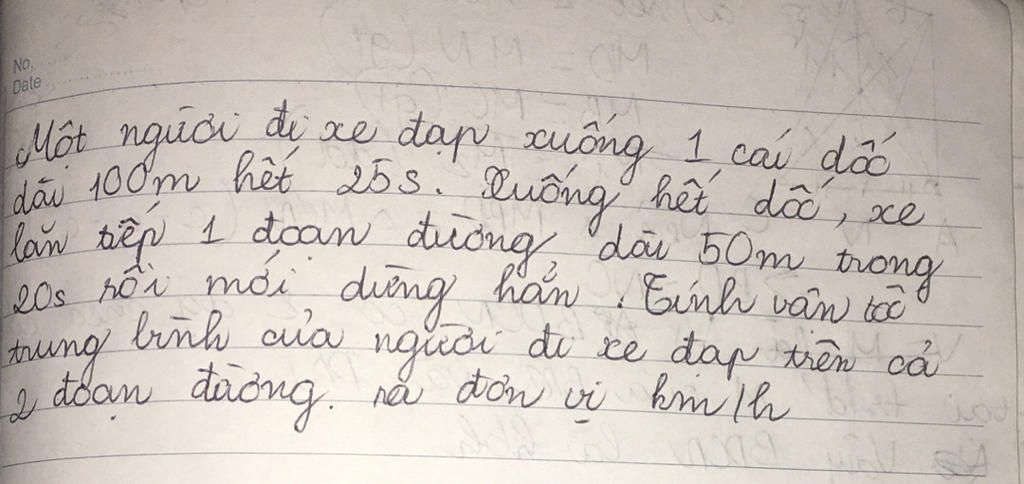 No.
Date
Một người đi xe đạp xuống 1 cái dốc
dài 100m hết 25s. Xuống hết dốc, xe
lăn tiếp 1 đoạn đường dài 50m trong
20s rồi mới dừng hẳn. Tính vân tốc
trung bình của người đi xe đạp trên cả
2 đoạn đường. ra đơn vị km/h